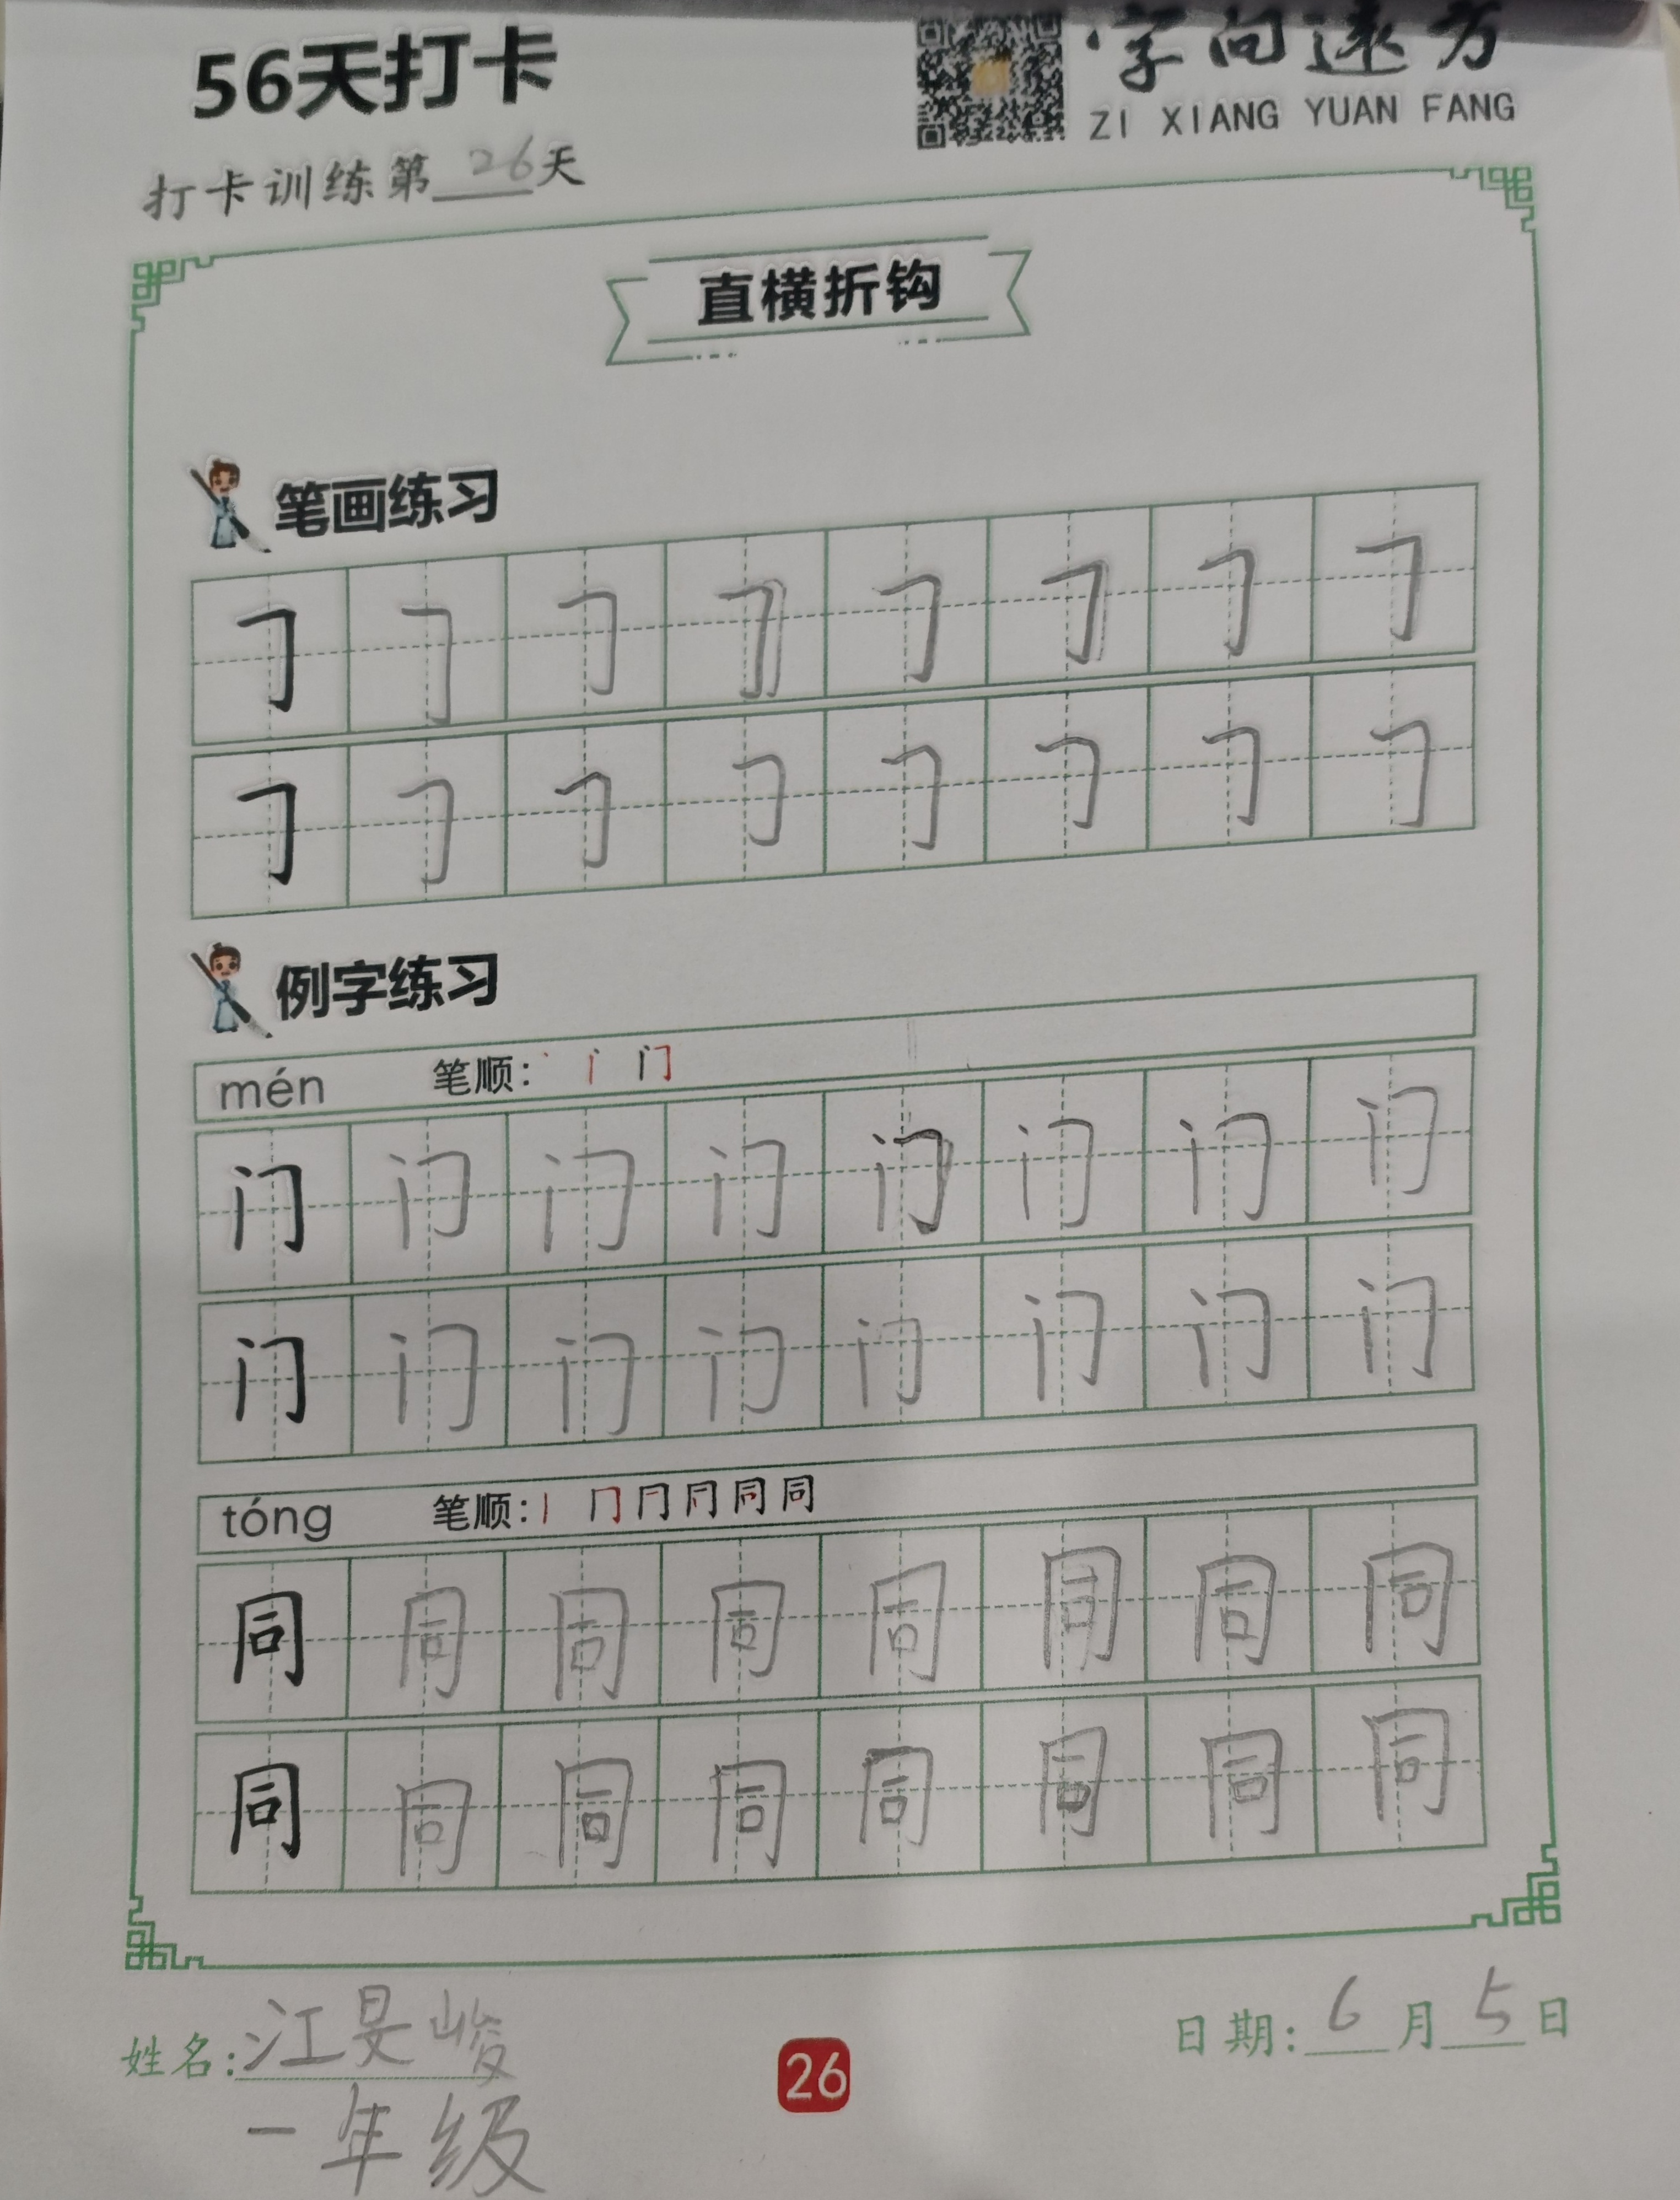 56天打卡
字向远方
ZI XIANG YUAN FANG
打卡训练第26天
直横折钩
笔画练习
𠃌 𠃌 𠃌 𠃌 𠃌 𠃌 𠃌 𠃌
𠃌 𠃌 𠃌 𠃌 𠃌 𠃌 𠃌 𠃌
例字练习
mén 笔顺: 丶 门
门 门 门 门 门 门 门 门
门 门 门 门 门 门 门 门
tóng 笔顺: 丨 冂 同 同
同 同 同 同 同 同 同 同
同 同 同 同 同 同 同 同
姓名: 江旻峻
一年级
26
日期: 6月5日